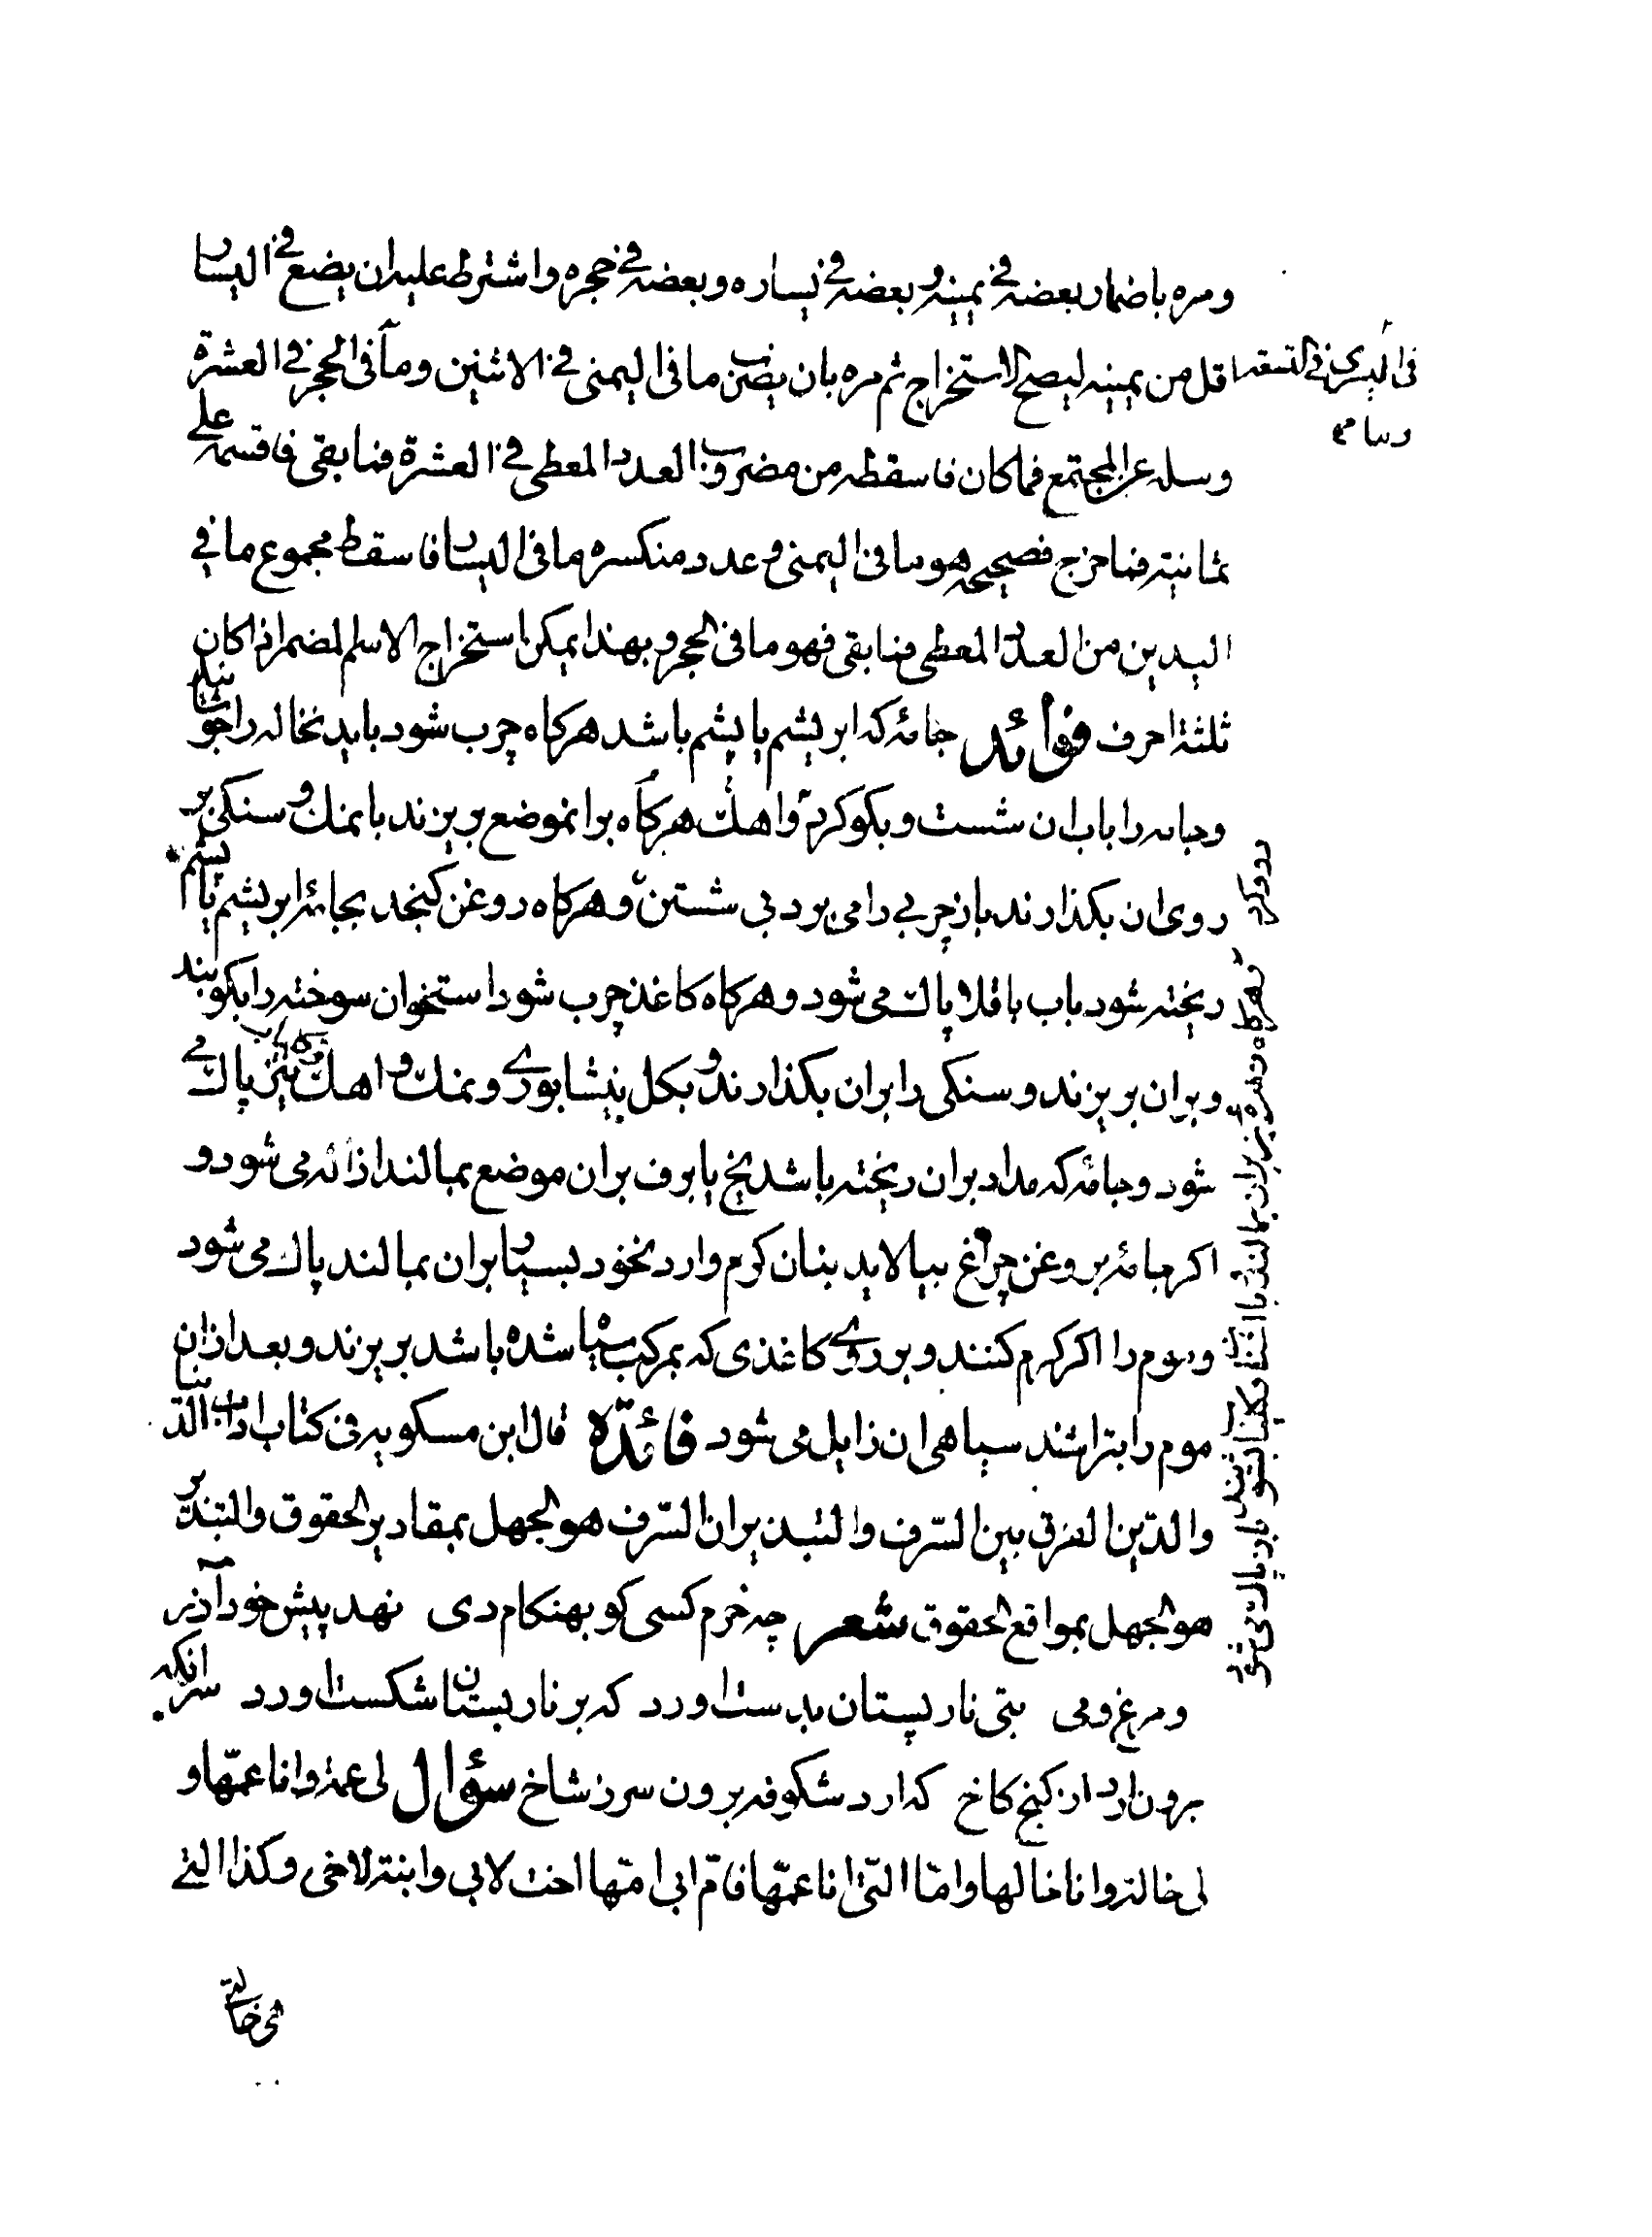 ومره باضمار بعضه فى يمينه وبعضه فى يساره وبعضه فى حجره واشترط عليه ان يضع فى اليسار
اقل من يمينه ليصح الاستخراج ثم مره بان يضرب ما فى اليمنى فى الاثنين وما فى الحجر فى العشرة
فى اليسرى فى التسعة
وسله عن المجتمع فما كان فاسقطه من مضروب العدد المعطى فى العشرة فما بقى فاقسمه على
ثمانيه فما خرج فصحيحه هو ما فى اليمنى وعدد منكسره ما فى اليسار فاسقط مجموع ما فى
اليدين من العدد المعطى فما بقى فهو ما فى الحجر وبهذا يمكن استخراج الاسم المضمر اذا كان
ثلثة احرف فوائد جامهٔ كه ابريشم يا پشم باشد هركاه چرب شود بايد نخاله را جوشانيد
وجامه را باب ان شست و بكو كرد وآهك هركاه برانموضع بريزند با نمك وسنكى بر
روى ان بكذارند بان چربى را مى برد بى شستن وهركاه روغن كنجد بجامهٔ ابريشم يا پشم
ريخته شود باب باقلا پاك مى شود وهركاه كاغذ چرب شود استخوان سوخته را بكوبند
وبران بريزند وسنكى را بران بكذارند وبكل نيشابورى ونمك واهك نيز پاك مى
شود وجامهٔ كه مداد بران ريخته باشد يخ يا برف بران موضع بمالند ازاله مى شود و
اكر جامهٔ بروغن چراغ بيالايد بنان كرم وارد نخود بسيار بران بمالند پاك مى شود
وموم را اكر كرم كنند وبر روى كاغذى كه بمركب سياه شده باشد بريزند وبعد ازان
موم را بتراشند سياهى ان زايل مى شود فائدة قال ابن مسكويه فى كتاب اداب الدنيا
والدين الفرق بين السرف والتبذير ان السرف هو الجهل بمقادير الحقوق والتبذير
هو الجهل بمواقع الحقوق شعر چه خرم كسى كو بهنكام دى نهد پيش خود آذر
ومرغ ومى بتى نار پستان بدست اورد كه بر نار بستان شكست اورد سرانكه
برون ارد از كنج كاخ كه ارد شكوفه برون سر ز شاخ سؤال لى عمة وانا عمها و
لى خالة وانا خالها واما التى انا عمها فام ابى امها اخت لابى وابنته لاخى وكذا التى
هى خالتى